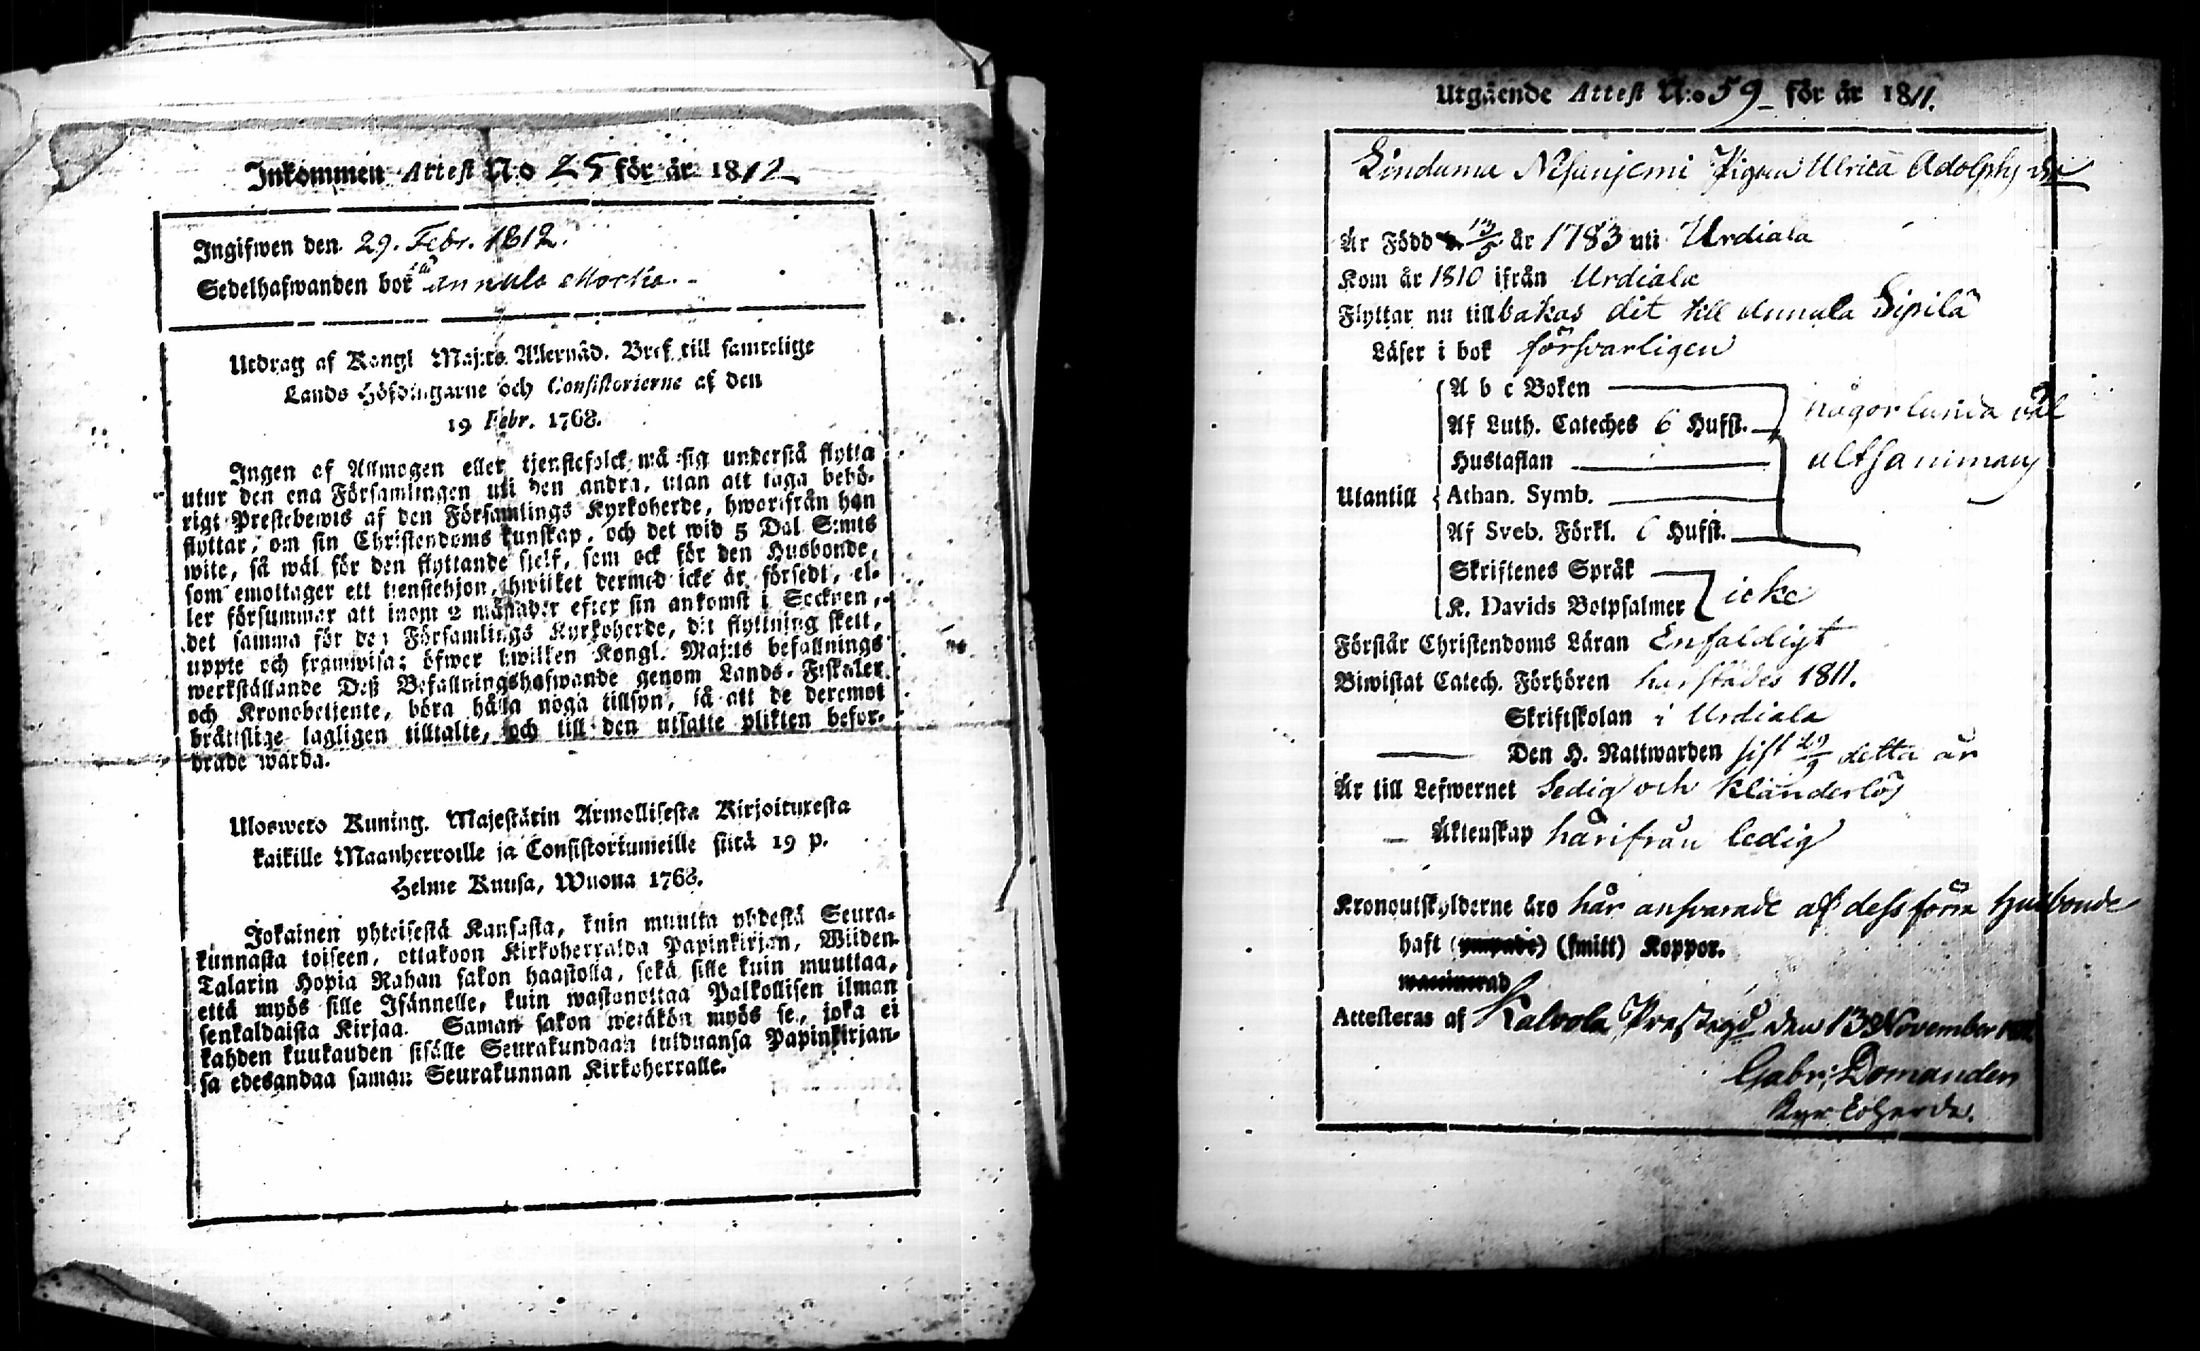 Inkommen Attest N:o 25 för år 1812
Ingifwen den 29. Febr. 1812.
Sedelhafwanden bor Annula
Utdrag af Kongl Maj:ts Allernåd. Bref till samtelige
Lands Höfdingarne och Consistorierne af den
19 Febr. 1768.
Ingen af Allmogen eller tjenstefolck må sig understå flytta
utur den ena Församlingen uti den andra, utan att taga behö-
rigt Prestebewis af den Församlings Kyrkoherde, hwarifrån han
flyttar, om sin Christendoms kunskap, och det wid 5 Dal S:mts
wite, så wäl för den flyttande sielf, som ock för den Husbonde,
som emottager ett tienstehjon, hwilket dermed icke är försedt, el-
ler försummar att inom 2 månader efter sin ankomst i Socknen,
det samma för den Församlings Kyrkoherde, dit flyttning skett,
uppte och framwisa; öfwer hwilken Kongl. Maj:ts befallnings
werkställande Deß Befallningshafwande genom Lands-Fiskaler
och Kronobetjente, böra hålla noga tillsyn, så att de deremot
bråttslige lagligen tilltalte, och till den utsatte plikten befor-
drade warda.
Uloswero Kuning. Majestätin Armollisesta Kirjoituxesta
kaikille Maanherroille ja Consistoriumeille siitä 19 p.
Helme Kuusa, Wuona 1768.
Jokainen yhteisestä Kansasta, kuin muutta yhdestä Seura-
kunnasta toiseen, ottakoon Kirkoherralda Papinkirjan, Wiiden
Talarin Hopia Rahan sakon haastolla, sekä sille kuin muuttaa,
että myös sille Isännelle, kuin wastanottaa Palkollisen ilman
senkaldaista Kirjaa. Saman sakon wetäkön myös se, joka ei
kahden kuukauden sisälle Seurakundaan tulduansa Papinkirjan-
sa edesandaa saman Seurakunnan Kirkoherralle.
Utgående Attest N:o 59 för år 1811.
Pigan Ulrica Adolphs dr
Är Född d. 13/5 år 1783 uti Urdiala
Kom år 1810 ifrån Urdiala
Flyttar nu tillbakas dit till Annula Sipilä
Läser i bok försvarligen
A b c Boken
Af Luth. Cateches 6 Hufst.
någorlunda väl
Hustaflan
altsamman
Utantill
Athan. Symb.
Af Sveb. Förkl. 6 Hufst.
Skriftenes Språk
icke
K. Davids Botpsalmer
Förstår Christendoms Läran Enfaldigt
Biwistat Catech. Förhören härstädes 1811.
Skriftskolan i Urdiala
Den H. Nattwarden sist 29/9 detta år
Är till Lefwernet Sedig och klanderlös
Äktenskap härifrån ledig
Kronoutskylderne äro här ansvarade af dess förra husbonde
haft (ympade) (smitt) Koppor.
waccinerad
Attesteras af Kalvola Prestegd den 13 November 1811
Gabr: Domander
Kyrkoherde.